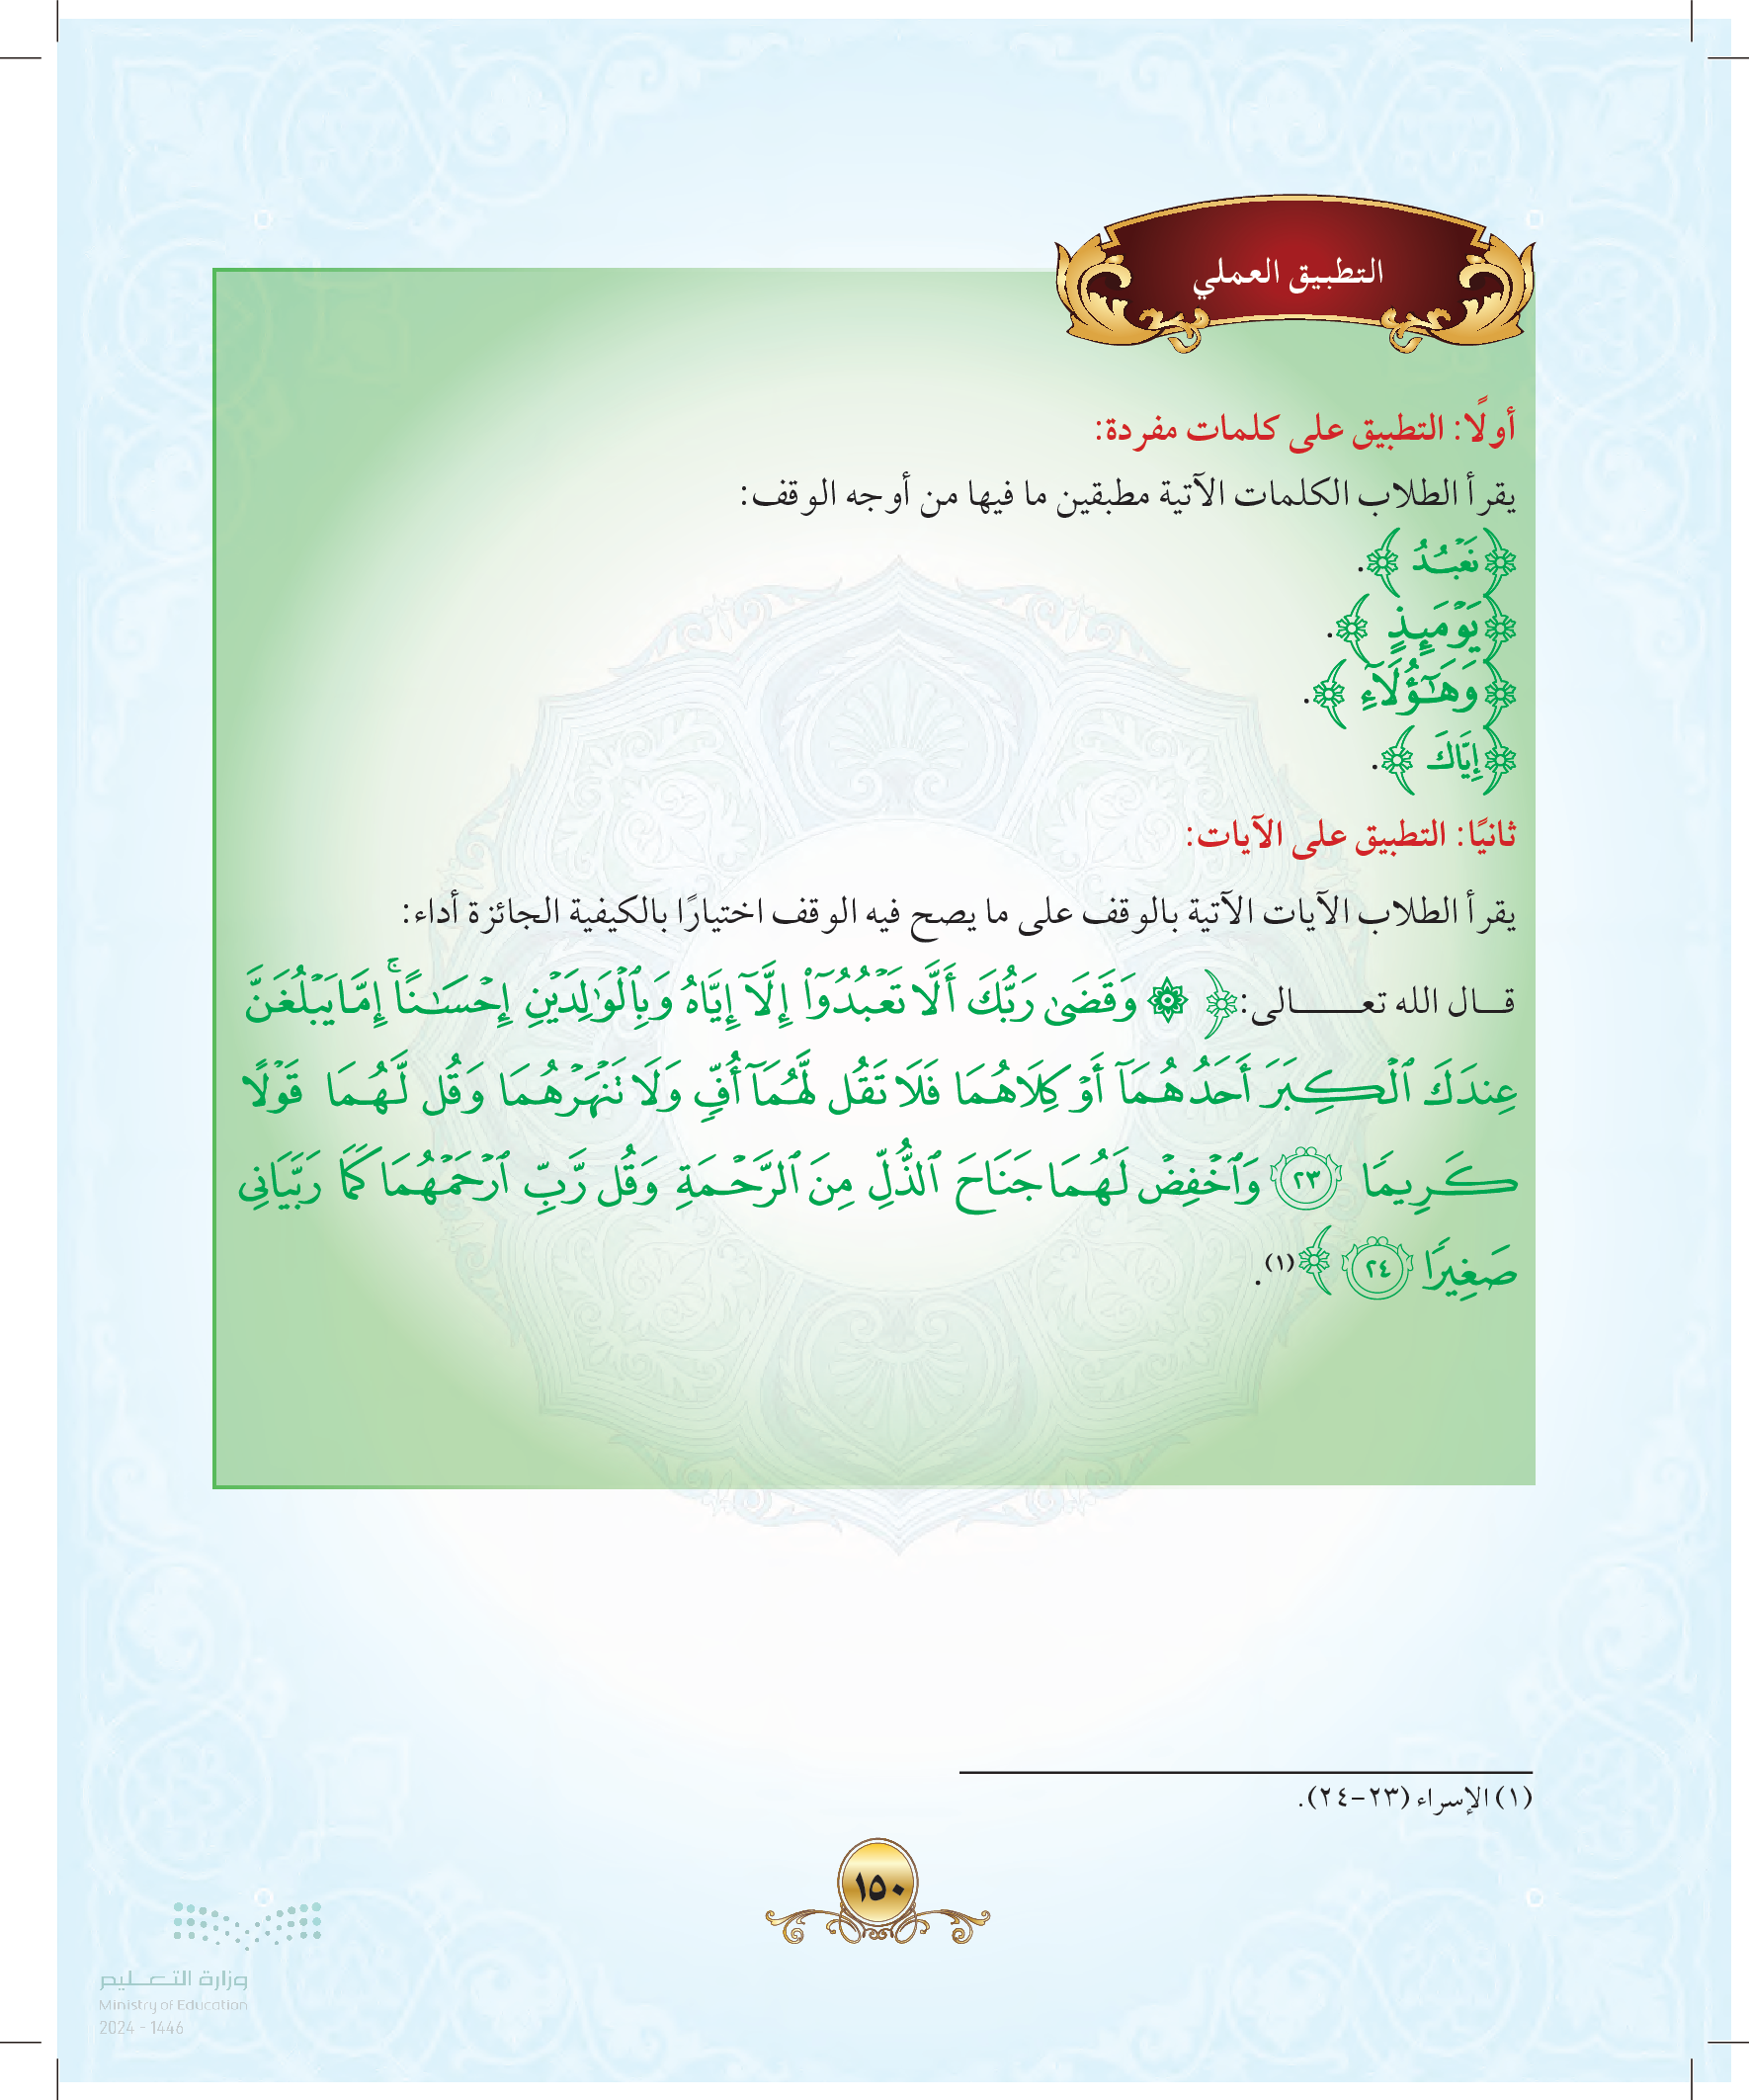 التطبيق العملي
أولًا: التطبيق على كلمات مفردة:
يقرأ الطلاب الكلمات الآتية مطبقين ما فيها من أوجه الوقف:
﴿نَعۡبُدُ ﴾.
﴿يَوۡمَئِذٍ ﴾.
﴿وَهَٰٓؤُلَآءِ ﴾.
﴿إِيَّاكَ ﴾.
ثانيًا: التطبيق على الآيات:
يقرأ الطلاب الآيات الآتية بالوقف على ما يصح فيه الوقف اختيارًا بالكيفية الجائزة أداء:
قـــال الله تعـــــالى:﴿ ۞ وَقَضَىٰ رَبُّكَ أَلَّا تَعۡبُدُوٓاْ إِلَّآ إِيَّاهُ وَبِٱلۡوَٰلِدَيۡنِ إِحۡسَٰنًاۚ إِمَّا يَبۡلُغَنَّ
عِندَكَ ٱلۡكِبَرَ أَحَدُهُمَآ أَوۡ كِلَاهُمَا فَلَا تَقُل لَّهُمَآ أُفّٖ وَلَا تَنۡهَرۡهُمَا وَقُل لَّهُمَا قَوۡلٗا
كَرِيمٗا ٢٣ وَٱخۡفِضۡ لَهُمَا جَنَاحَ ٱلذُّلِّ مِنَ ٱلرَّحۡمَةِ وَقُل رَّبِّ ٱرۡحَمۡهُمَا كَمَا رَبَّيَانِي
صَغِيرٗا ٢٤ ﴾(١).
(١) الإسراء (٢٣-٢٤).
١٥٠
وزارة التعـــليم
Ministry of Education
2024 - 1446